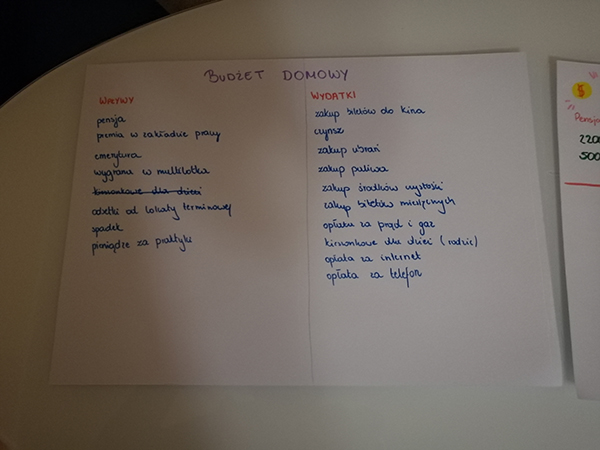 BUDŻET DOMOWY
WPŁYWY
pensja
premia w zakładzie pracy
emerytura
wygrana w multilotka
kieszonkowe dla dzieci
odsetki od lokaty terminowej
spadek
pieniądze za praktyki
WYDATKI
zakup biletów do kina
czynsz
zakup ubrań
zakup paliwa
zakup środków czystości
zakup biletów miesięcznych
opłata za prąd i gaz
kieszonkowe dla dzieci (rodzic)
opłata za internet
opłata za telefon
5
Pensja
2200
500